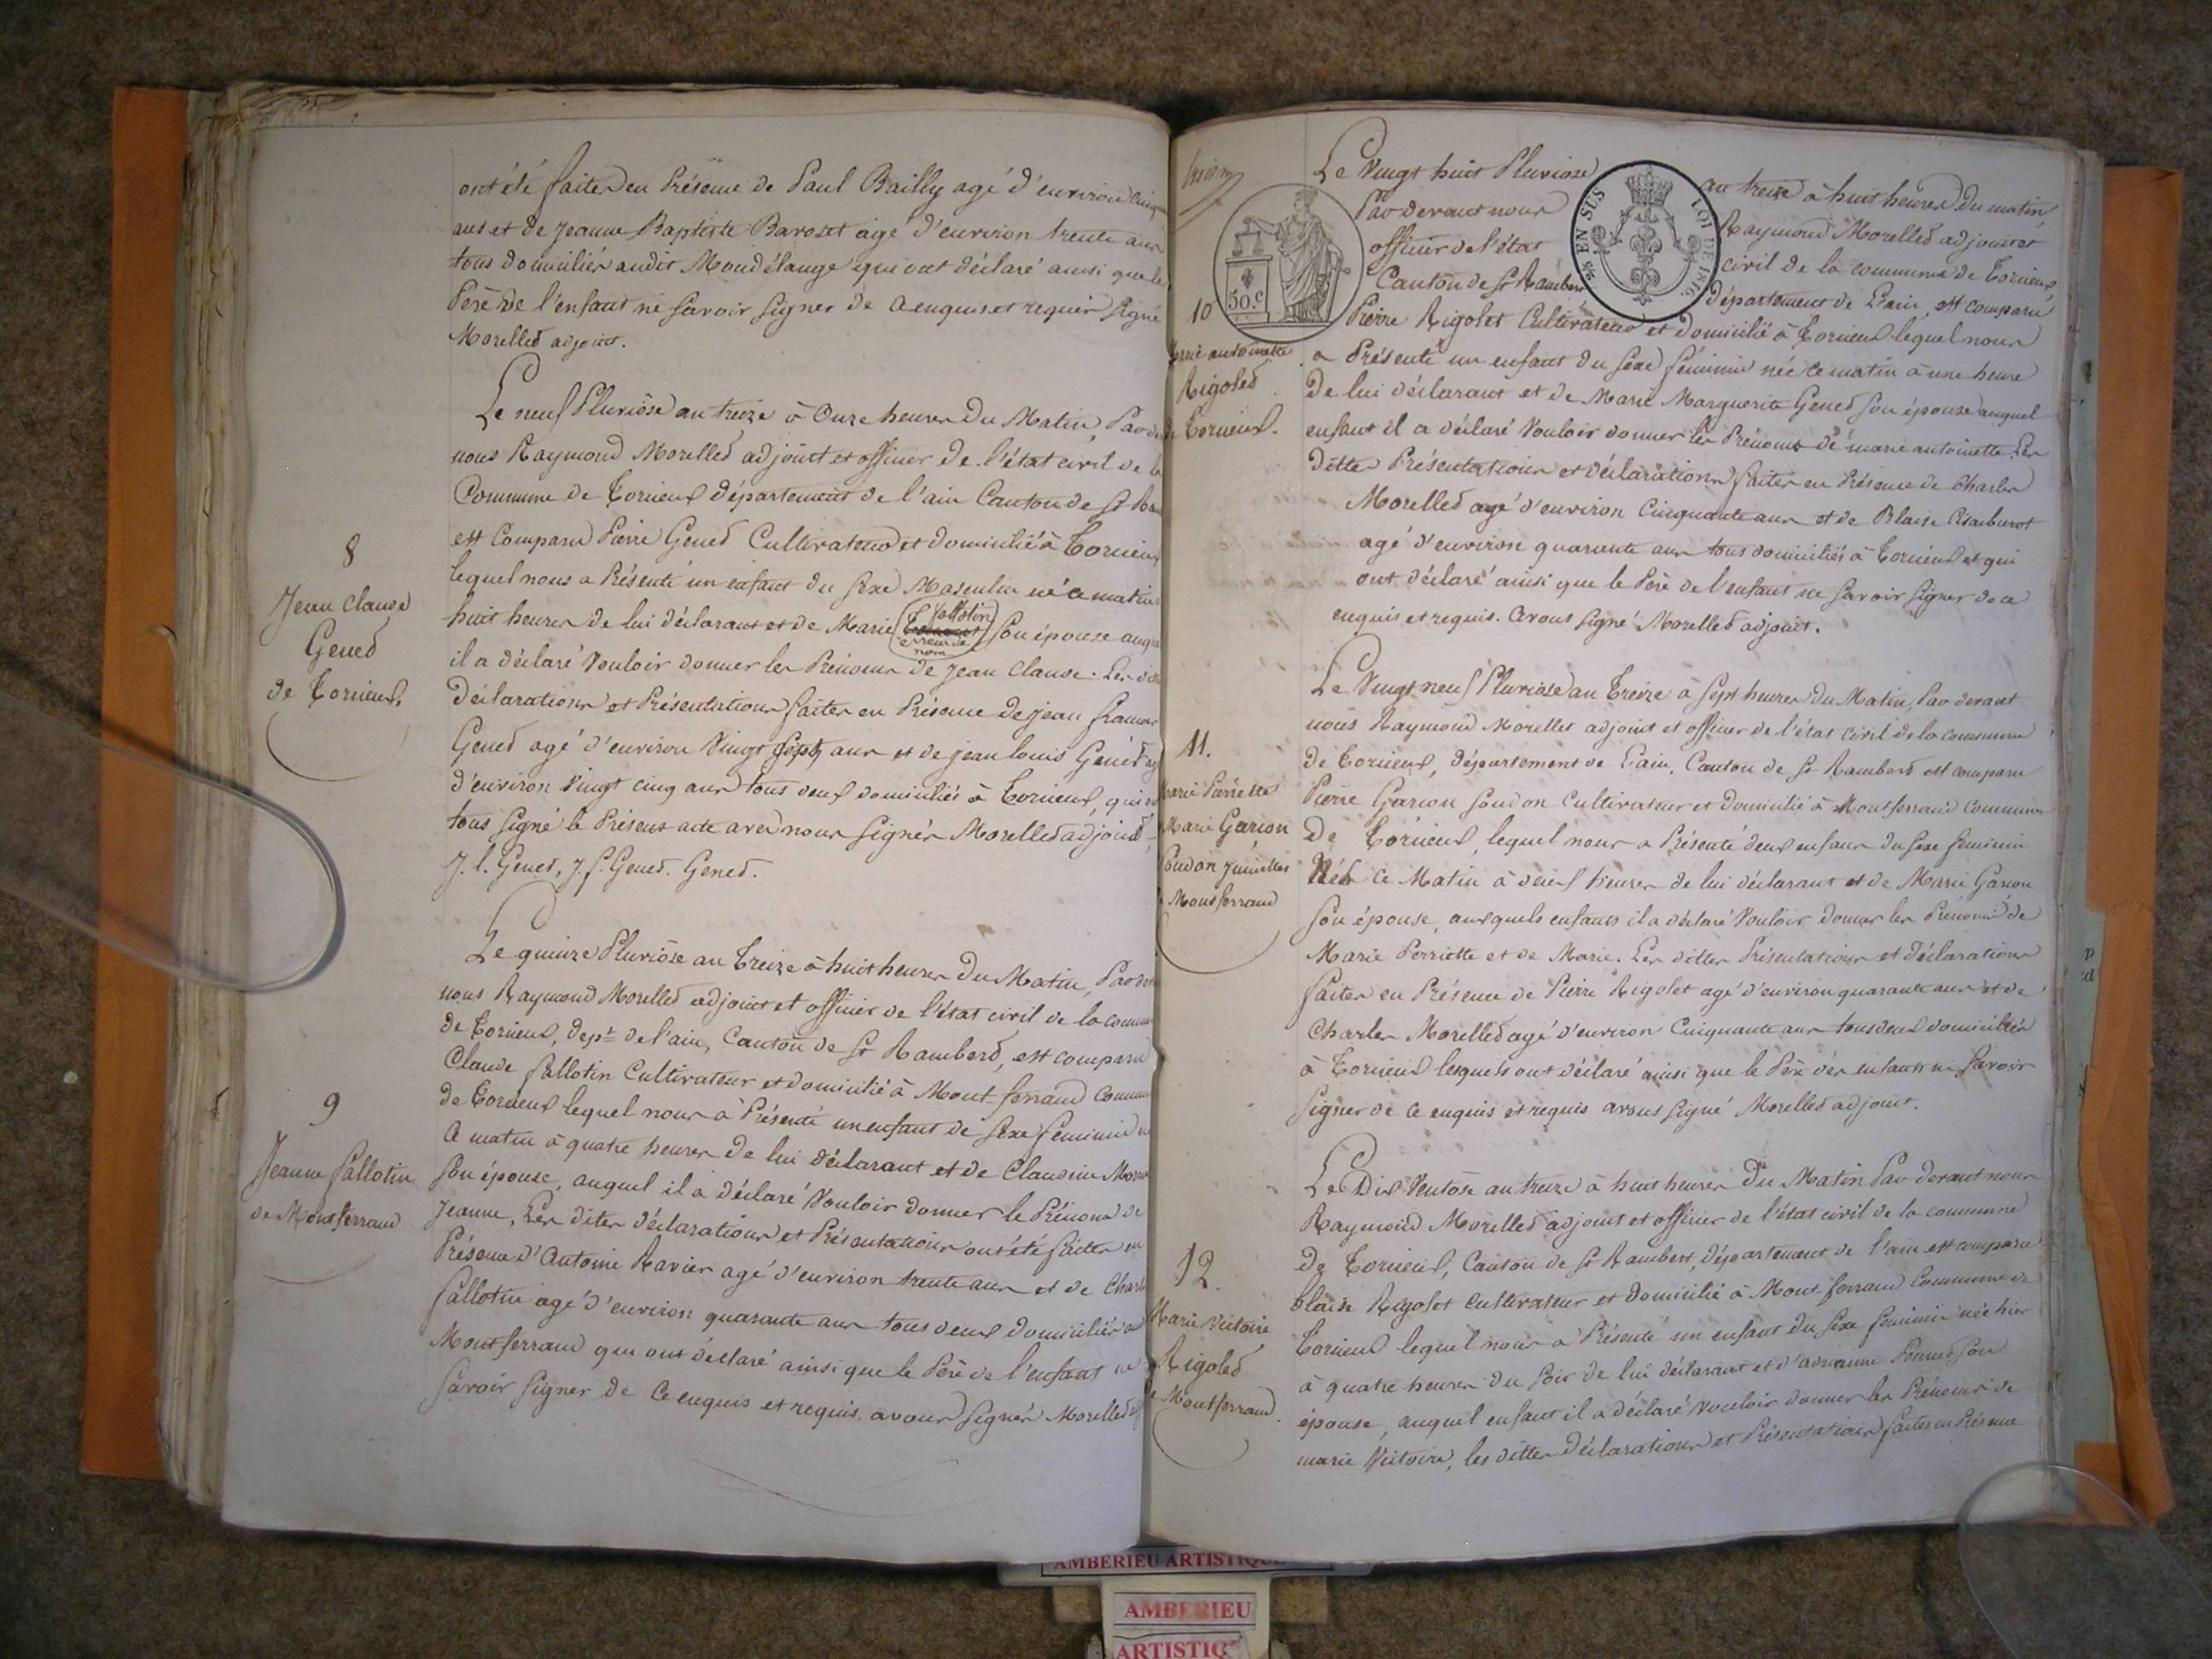 ont été faites en Présence de Paul Bailly agé d'environ
ans et de Jeanne Baptiste Barozet agé d'environ trente ans
tous domiciliés audit Mondélange qui ont déclaré ainsi que le
Père de l'enfant ne savoir signer de ce enquis et requis signé
Morelled adjoint.
Le neuf Pluviôse an treize à Onze heures Du Matin, Par de
nous Raymond Morelled adjoint et officier de l'état civil de la
Commune de Torcieux département de l'ain Canton de St
est Comparu Pierre Gened Cultivateur et domicilié à Torcieux
lequel nous a Présenté un enfant du sexe Masculin né ce matin
huit heures de lui déclarant et de Marie Fallotin son épouse auquel
erreur de
nom
il a déclaré Vouloir donner les Prénoms de Jean Claude. Les dites
Déclarations et Présentations faites en Présence de Jean
Gened agé d'environ Vingt Sept ans et de Jean Louis Gened agé
d'environ Vingt cinq ans tous deux domiciliés à Torcieux, qui ont
tous signé le Présent acte avec nous signés Morelled adjoint,
J. l. Gened, J. f. Gened. Gened.
8
Jean Claude
Gened
de Torcieux.
Le quinze Pluviôse an Treize à huit heures Du Matin, Par de
nous Raymond Morelled adjoint et officier de l'état civil de la Commune
de Torcieux, dept de l'ain, Canton de St Ramberd, est comparu
Claude fallotin Cultivateur et domicilié à Mont ferrand Commune
de Torcieux lequel nous à Présenté un enfant de sexe feminin
Ce matin à quatre heures de lui déclarant et de Claudine
son épouse, auquel il a déclaré Vouloir donner le Prénom de
Jeanne, Les dites déclarations et Présentations ont été faites en
Présence d'Antoine Ravier agé d'environ trente ans et de Charles
fallotin agé d'environ quarante ans tous deux domiciliés au
Montferrand qui ont déclaré ainsi que le Père de l'enfant ne
savoir signer de Ce enquis et requis avons signés Morelled
9
Jeanne fallotin
de Montferrand
Le Vingt huit Pluviose an treize à huit heures Du matin
Par devant nous Raymond Morelled adjoint et
officier de l'état civil de la commune de Torcieux
Canton de St Rambert département de L'ain, est comparu
Pierre Rigolet Cultivateur et domicilié à Torcieux lequel nous
a Présenté un enfant du sexe féminin née ce matin à une heure
De lui déclarant et de Marie Marguerite Gened son épouse auquel
enfant il a déclaré Vouloir donner les Prénoms de marie antoinette. Les
dittes Présentations et déclarations faites en Présence de Charles
Morelled agé d'environ Cinquante ans et de Blaise
agé d'environ quarante ans tous domiciliés à Torcieux et qui
ont déclaré ainsi que le Père de l'enfant ne savoir signer de ce
enquis et requis. avons signé Morelled adjoint.
30.C
EN SUS
LOI DE 1816
10
antoinette
Rigoled
de Torcieux.
Le Vingt neuf Pluviose an Treize à Sept heures Du Matin, Par devant
nous Raymond Morelled adjoint et officier de l'état civil de la commune
de Torcieux, département de L'ain, Canton de St Ramberd est comparu
Pierre Garion soudon Cultivateur et domicilié à Montferrand Commune
De Torcieux, lequel nous a Présenté deux enfans du sexe feminin
Nés ce Matin à deux heures de lui déclarant et de Marie Garion
son épouse, auxquels enfants il a déclaré Vouloir donner les Prenoms de
Marie Perriette et de Marie. Les dittes Présentations et déclarations
faites en Présence de Pierre Rigolet agé d'environ quarante ans et de
Charles Morelled agé d'environ Cinquante ans tous deux domiciliés
à Torcieux lesquels ont déclaré ainsi que le Père des enfants ne savoir
signer de ce enquis et requis avons signé Morelled adjoint.
11.
Marie Pierrette
Marie Garion
soudon Jumelles
Montferrand
Le Dix Ventose an treize à huit heures Du Matin Par devant nous
Raymond Morelled adjoint et officier de l'état civil de la commune
De Torcieux, Canton de St Rambert, département de l'ain est comparu
blaise Rigolet cultivateur et domicilié à Mont ferrand Commune de
Torcieux lequel nous a Présenté un enfant du sexe feminin née hier
à quatre heures du soir de lui déclarant et d' son
épouse, auquel enfant il a déclaré vouloir donner les Prénoms de
marie Victoire, les dittes déclarations et Présentations faites en Présence
12.
Marie Victoire
Rigoled
Montferrand.
AMBERIEU ARTISTIQUE
AMBERIEU
ARTISTIQ